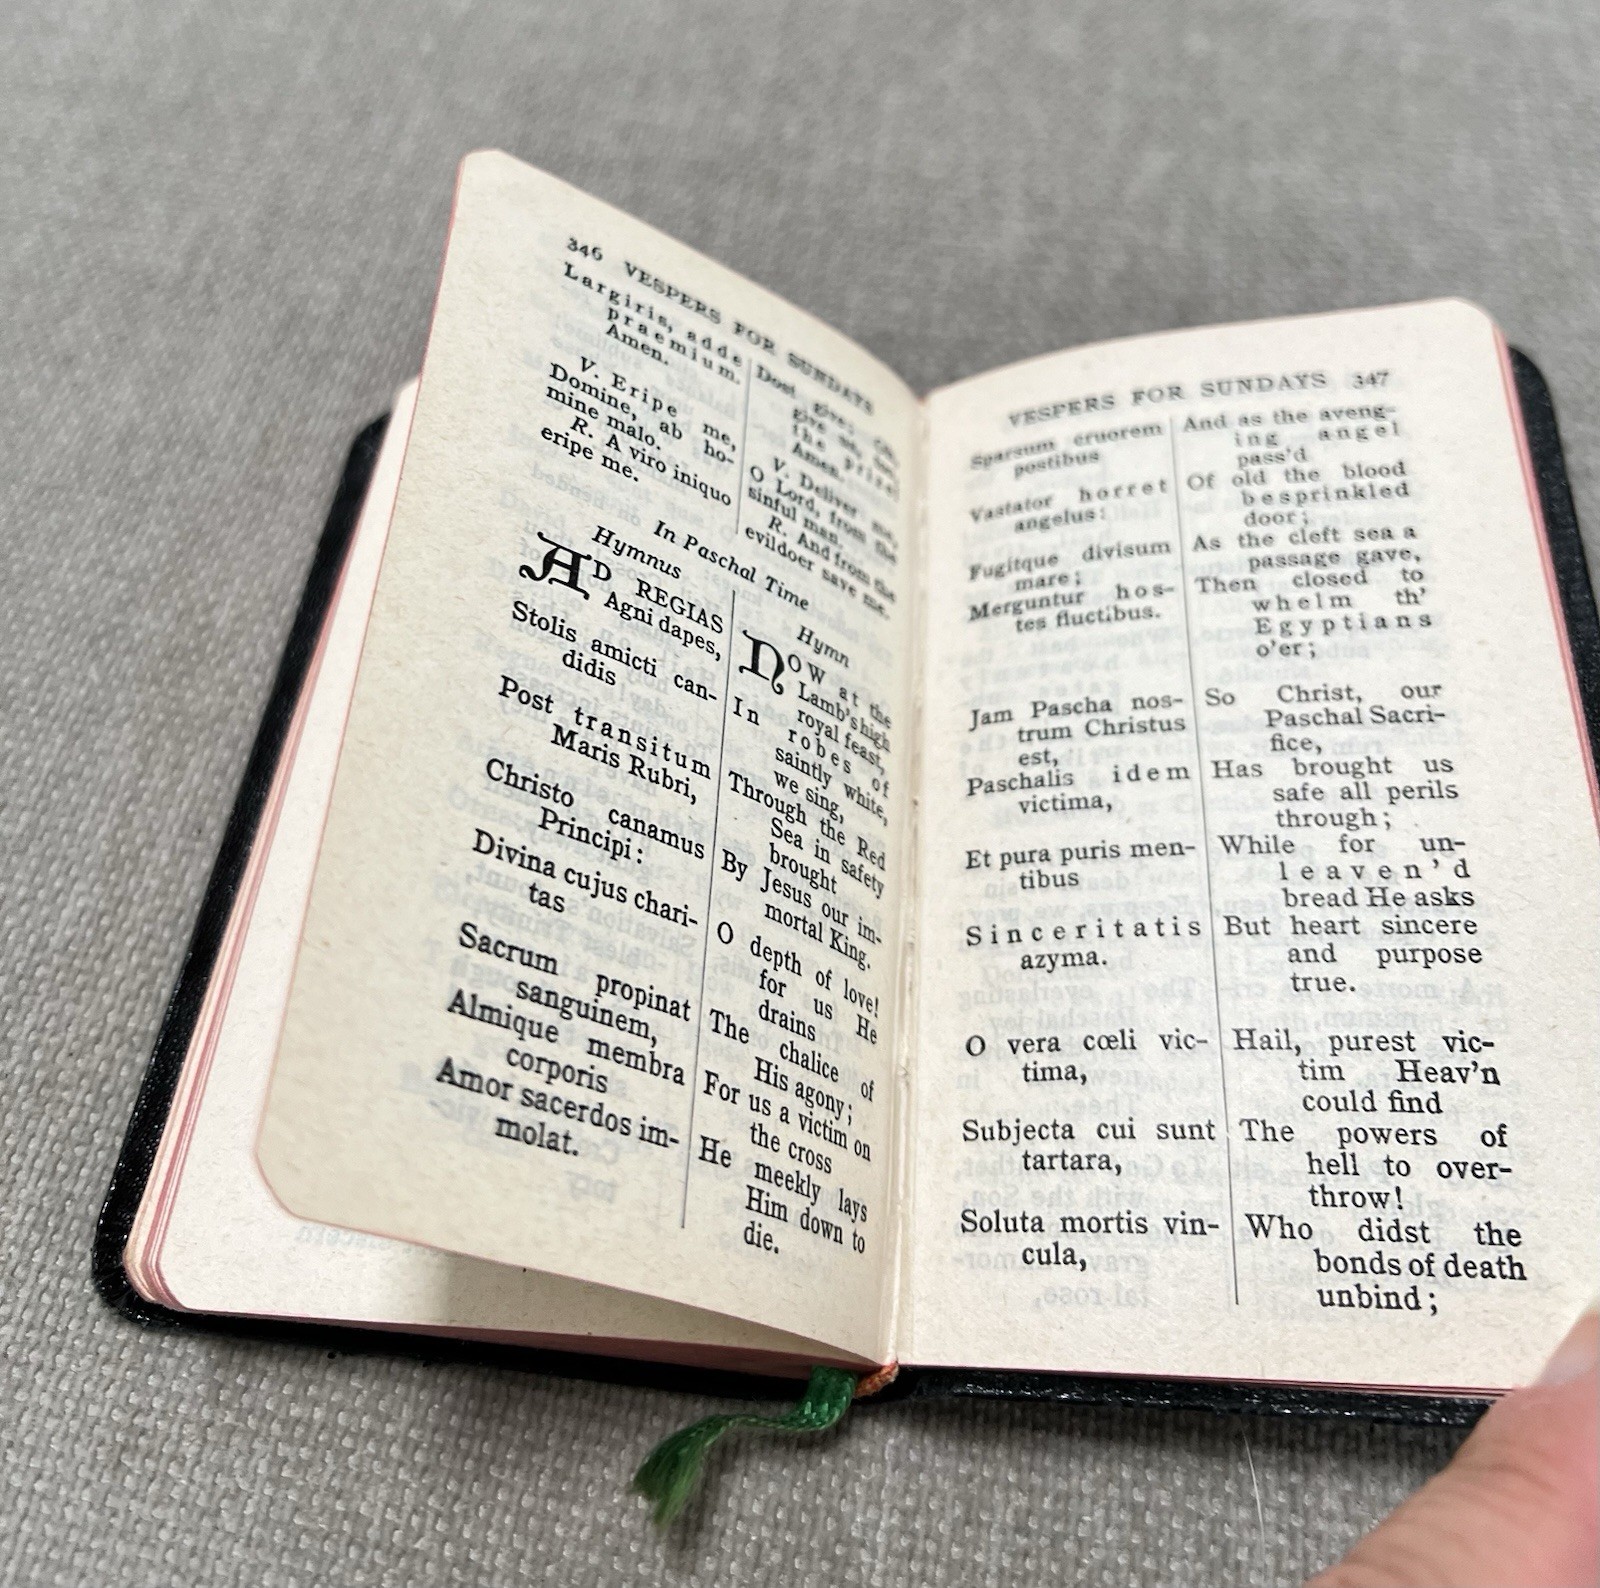 346 VESPERS FOR SUNDAYS
Largiris, adde
praemium.
Amen.
V. Eripe me,
Domine, ab ho-
mine malo.
R. A viro iniquo
eripe me.
Dost give: Oh,
give us, Lord,
the prize!
Amen.
V. Deliver me,
O Lord, from the
sinful man.
R. And from the
evildoer save me.
In Paschal Time
Hymnus
AD REGIAS
Agni dapes,
Stolis amicti can-
didis
Post transitum
Maris Rubri,
Christo canamus
Principi:
Divina cujus chari-
tas
Sacrum propinat
sanguinem,
Almique membra
corporis
Amor sacerdos im-
molat.
Hymn
NOW at the
Lamb's high
royal feast,
In robes of
saintly white,
we sing,
Through the Red
Sea in safety
brought
By Jesus our im-
mortal King.
O depth of love!
for us He
drains
The chalice of
His agony;
For us a victim on
the cross
He meekly lays
Him down to
die.
VESPERS FOR SUNDAYS 347
Sparsum cruorem
postibus
Vastator horret
angelus:
Fugitque divisum
mare;
Merguntur hos-
tes fluctibus.
Jam Pascha nos-
trum Christus
est,
Paschalis idem
victima,
Et pura puris men-
tibus
Sinceritatis
azyma.
O vera cœli vic-
tima,
Subjecta cui sunt
tartara,
Soluta mortis vin-
cula,
And as the aveng-
ing angel
pass'd
Of old the blood
besprinkled
door;
As the cleft sea a
passage gave,
Then closed to
whelm th'
Egyptians
o'er;
So Christ, our
Paschal Sacri-
fice,
Has brought us
safe all perils
through;
While for un-
leaven'd
bread He asks
But heart sincere
and purpose
true.
Hail, purest vic-
tim Heav'n
could find
The powers of
hell to over-
throw!
Who didst the
bonds of death
unbind;